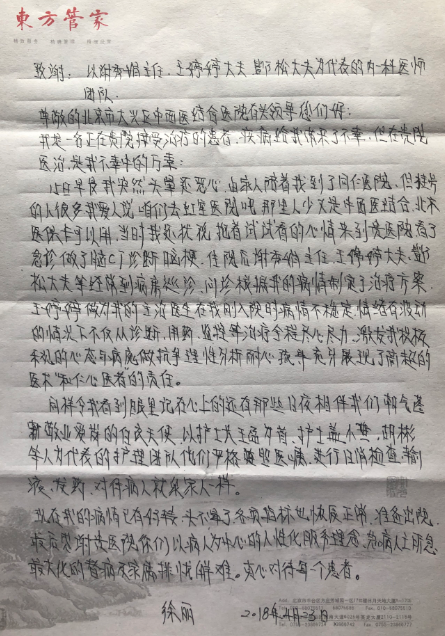 東方管家
致谢：以谢秀娟主任、王婷婷大夫、邹松大夫为代表的内一科医师
团队.
尊敬的北京市大兴区中西医结合医院有关领导您们好：
我是一名正在贵院接受治疗的患者、疾病给我带来了不幸，但在贵院
医治是我不幸中的万幸：
早晨我突然头晕恶心、由家人陪着我到了同仁医院，但挂号
的人很多我爱人说咱们去红星医院吧那里人少又是中西医结合，北京
医保卡可以用，当时我忧，抱着试试看的心情来到该医院看了
急诊做了脑CT诊断脑梗，住院后谢主任、王婷婷大夫、邹
松大夫等经常到病房巡诊、问诊根据我的病情制定了治疗方案，
王婷婷做为我的主治医生在我刚入院时病情不稳定情绪有波动
的情况下不仅从诊断、用药、监控等治疗全程尽心尽力，激发我积极
乐观的心态与病魔做抗争，理性分析耐心充分展现了高超的
医术和仁心医者的责任。
同样令我看到眼里记在心上的还有那些日夜相伴我们朝气蓬
勃敬业爱岗的白衣天使，以护士长王、护士姜、胡彬
等人为代表的护理团队他们严格遵照医嘱、进行日常检查、输
液、发药、对待病人就象家人一样。
现在我的病情已有好转、头不晕了各项指标也恢复正常，准备出院，
最后感谢该医院你们以病人为中心的人性化服务理念，急病人之所急
最大化的替病人家属排忧解难。真心对待每个患者。
徐丽 2018年4月23日